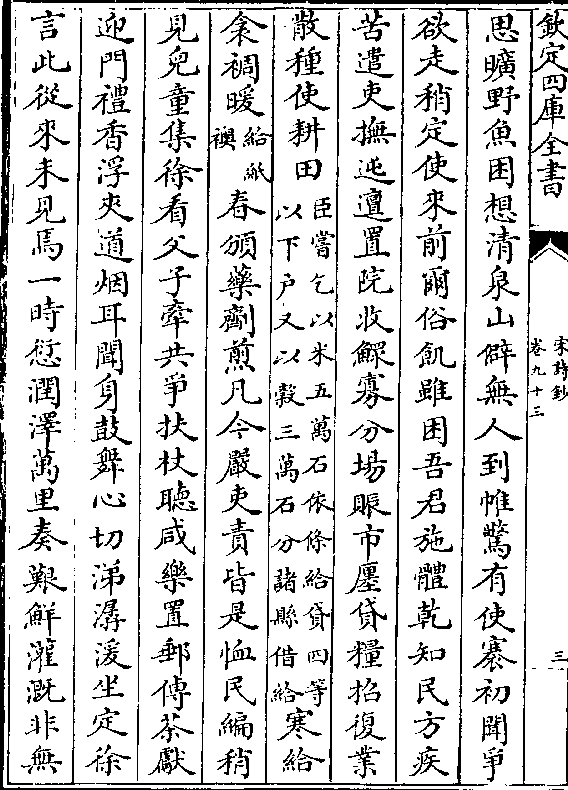 欽定四庫全書
宋詩鈔
卷九十三
三
思曠野魚困想清泉山僻無人到惟驚有使褰初聞爭
欲走稍定使來前爾俗飢雖困吾君施體乾知民方疾
苦遣吏撫迍邅置院收鰥寡分場賑市廛貸糧招復業
散種使耕田臣嘗乞以米五萬石依條給貸四等
以下户又以糓三萬石分諸縣借給寒給
衾裯暖給紙
襖春頒藥劑煎凡今嚴吏責皆是恤民編稍
見兒童集徐看父子牽共爭扶杖聽咸樂置郵傳茶獻
迎門禮香浮夾道烟耳聞身鼓舞心切涕潺湲坐定徐
言此從來未見焉一時愆潤澤萬里奏艱鮮灌溉非無